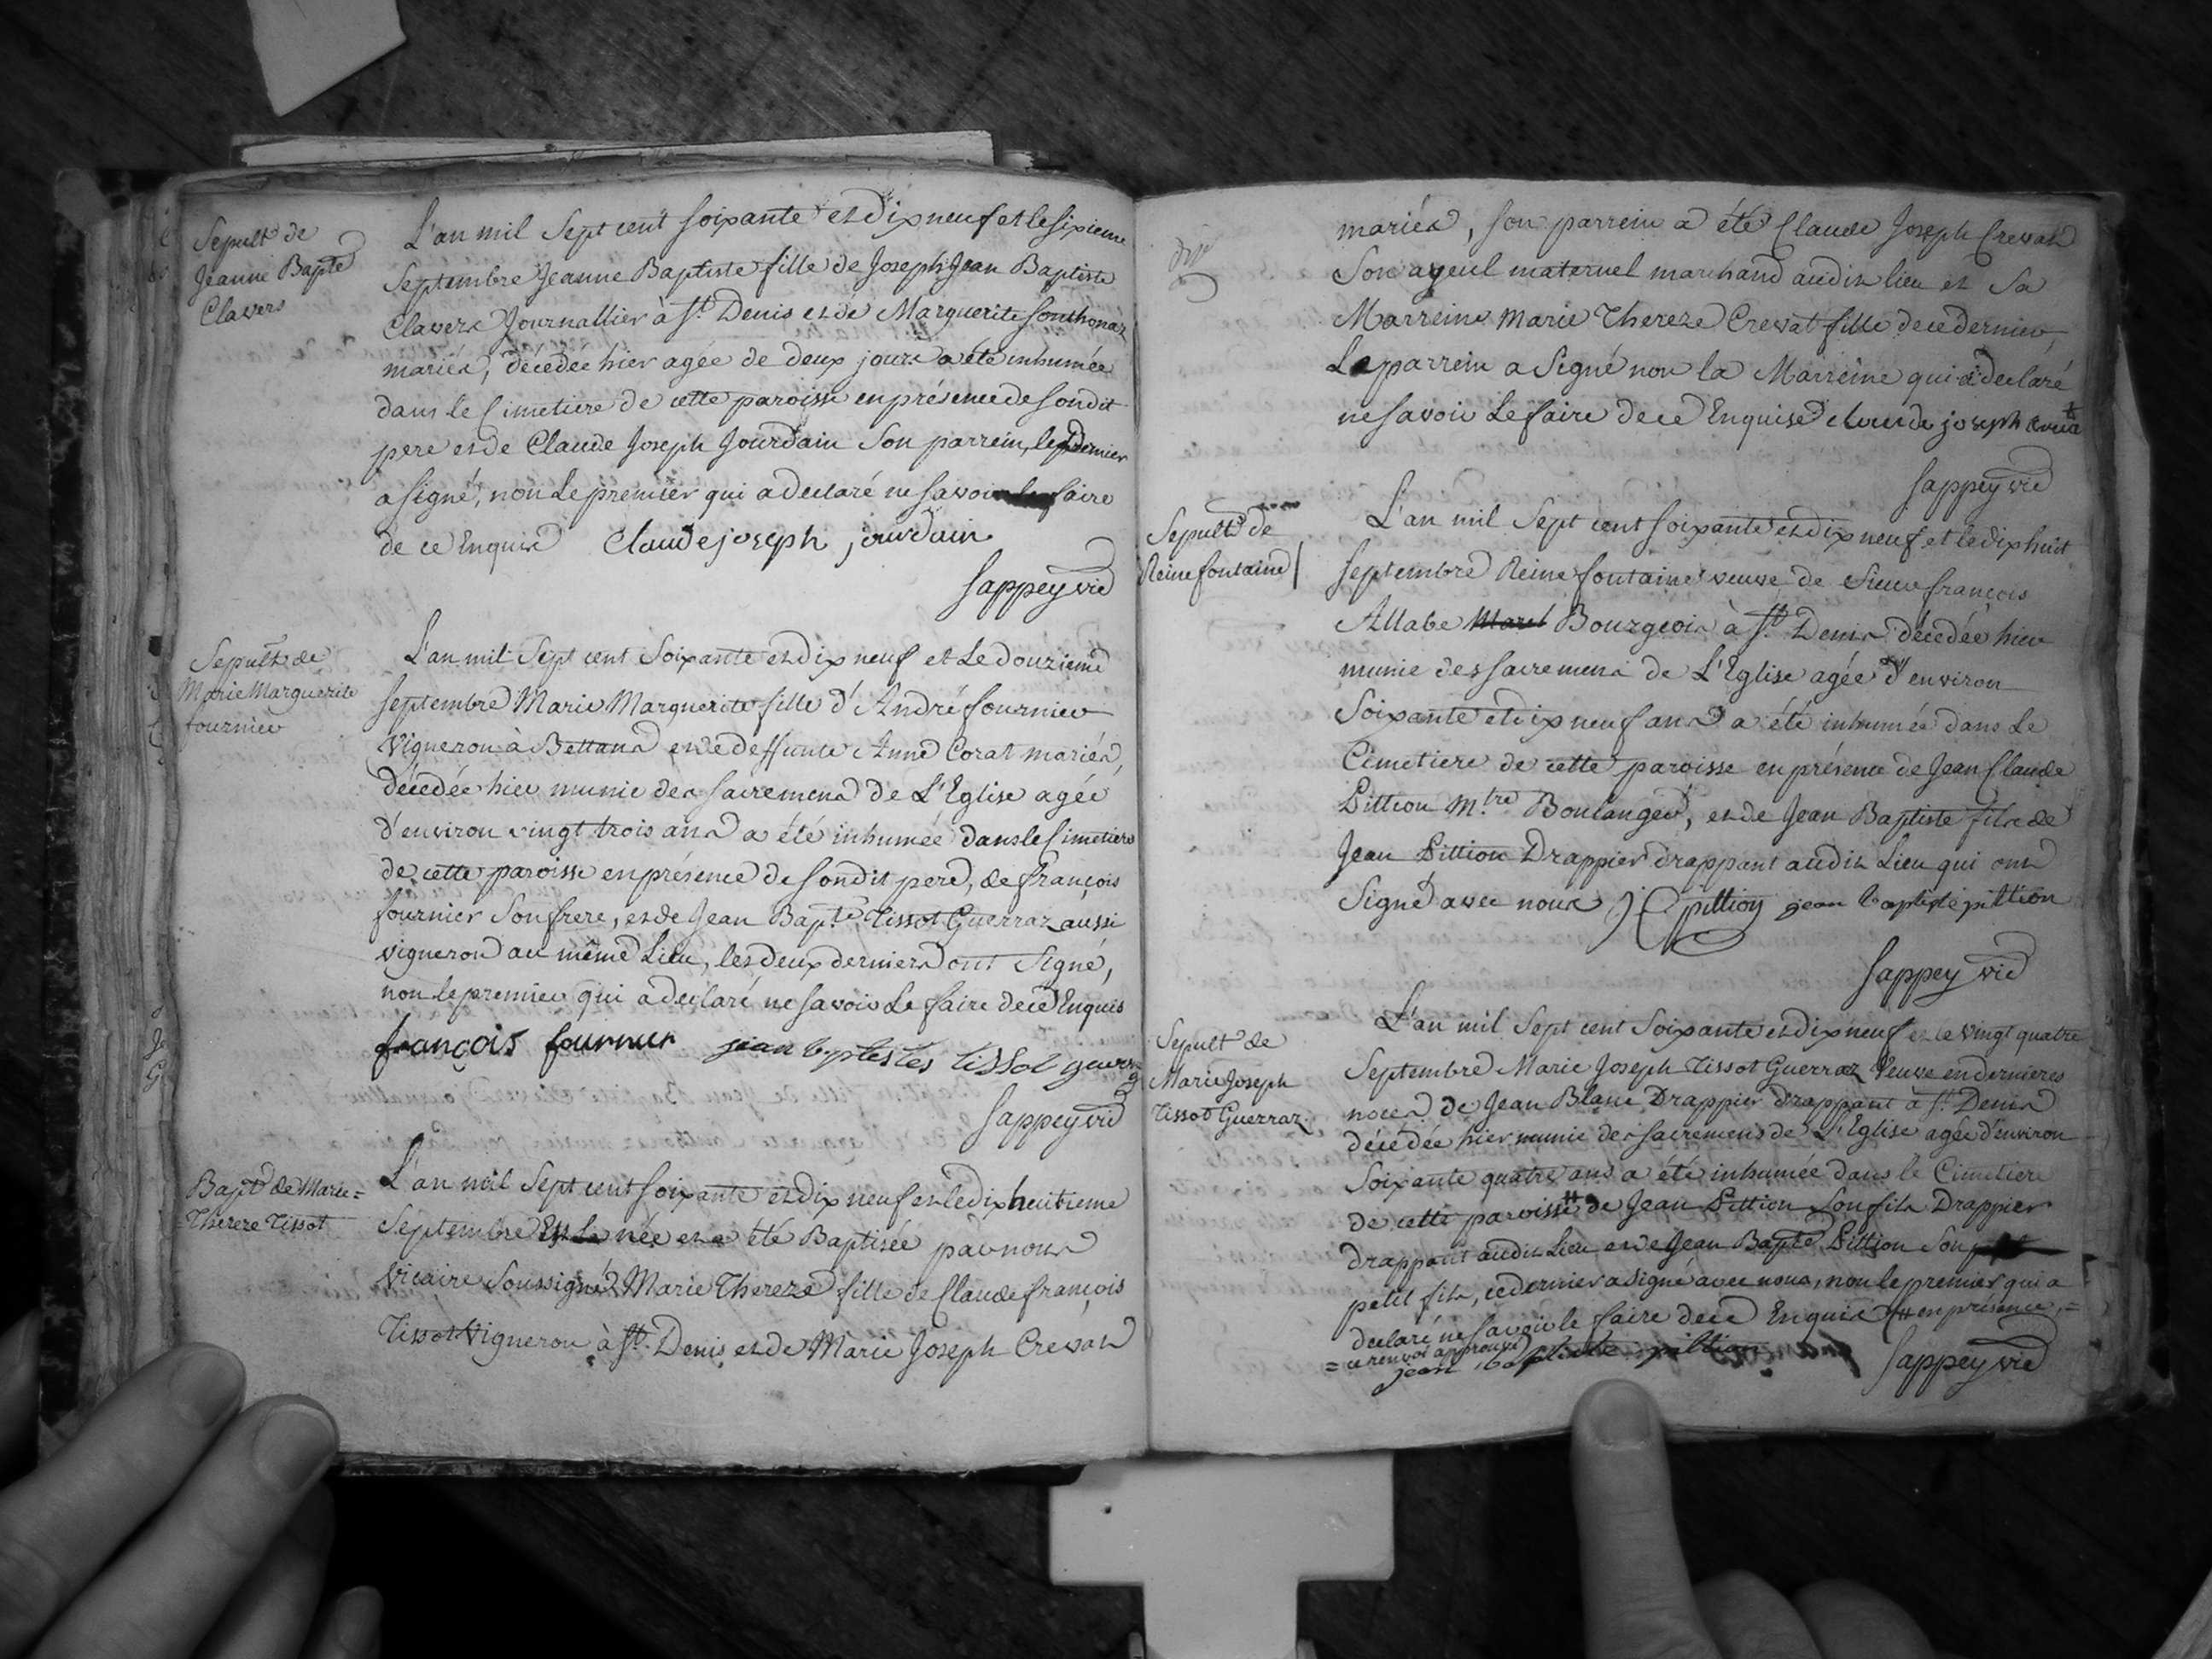 Sepult de
Jeanne Bapte
Clavers
L'an mil Sept cent soixante et dix neuf et le sixieme
Septembre Jeanne Baptiste fille de Joseph Jean Baptiste
Clavers Journallier à St. Denis et de Marguerite Sonthonaz
mariés, décedée hier agée de deux jours a été inhumée
dans le Cimetiere de cette paroisse en présence de son dit
pere et de Claude Joseph Jourdain son parrein, le dernier
a signé, non le premier qui a declaré ne savoir le faire
de ce Enquis Claude joseph jourdain
Sappey vic
Sepult de
Marie Marguerite
fournier
L'an mil Sept cent Soixante et dix neuf et Le douzieme
septembre Marie Marguerite fille d'André fournier
Vigneron à Bettans et de deffunte Anne Corat mariés,
décedée hier munie des sacremens de L'Eglise agée
d'environ vingt trois ans a été inhumée dans le Cimetiere
de cette paroisse en présence de son dit pere, de françois
fournier son frere, et de Jean Bapt.te Tissot Guerraz aussi
vigneron au même Lieu, les deux derniers ont Signé,
non le premier qui a declaré ne savoir Le faire de ce Enquis
françois fournier jean bptestes tissot guerraz
Sappey vic
Bapt de Marie=
=Thereze Tissot
L'an mil Sept cent soixante et dix neuf et le dix heuitieme
Septembre Est née et a été Baptisée par nous
Vicaire Soussigné Marie Thereze fille de Claude françois
Tissot Vigneron à St. Denis et de Marie Joseph Crevat
mariés, son parrein a été Claude Joseph Crevat
Son ayeul maternel marchand audit lieu et Sa
Marreine Marie Thereze Crevat fille de ce dernier,
Le parrein a Signé non la Marreine qui a declaré
ne savoir Le faire de ce Enquise claude joseph crevat
Sappey vic
Sepult de
Reine fontaine
L'an mil Sept cent soixante et dix neuf et le dix huit
septembre Reine fontaine veuve de Sieur françois
Allabe Bourgeois à St. Denis décedée hier
munie des sacremens de L'Eglise agée d'environ
Soixante et dix neuf ans a été inhumée dans Le
Cimetiere de cette paroisse en présence de Jean Claude
Pittion M.tre Boulanger, et de Jean Baptiste fils de
Jean Pittion Drappier drappant audit Lieu qui ont
Signé avec nous J C pittion jean baptiste pittion
Sappey vic
Sepult de
Marie Joseph
Tissot Guerraz
L'an mil Sept cent Soixante et dix neuf et le vingt quatre
Septembre Marie Joseph Tissot Guerraz Veuve en dernieres
noces de Jean Blanc Drappier drappant à St. Denis
décedée hier munie des sacremens de L'Eglise agée d'environ
Soixante quatre ans a été inhumée dans le Cimetiere
de cette paroisse # de Jean Pittion Son fils Drappier
drappant audit Lieu et de Jean Bapte Pittion Son
petit fils, ce dernier a signé avec nous, non le premier qui a
declaré ne savoir le faire de ce Enquis # en présence,=
= ce renvoi approuvé
jean baptiste pittion Sappey vic